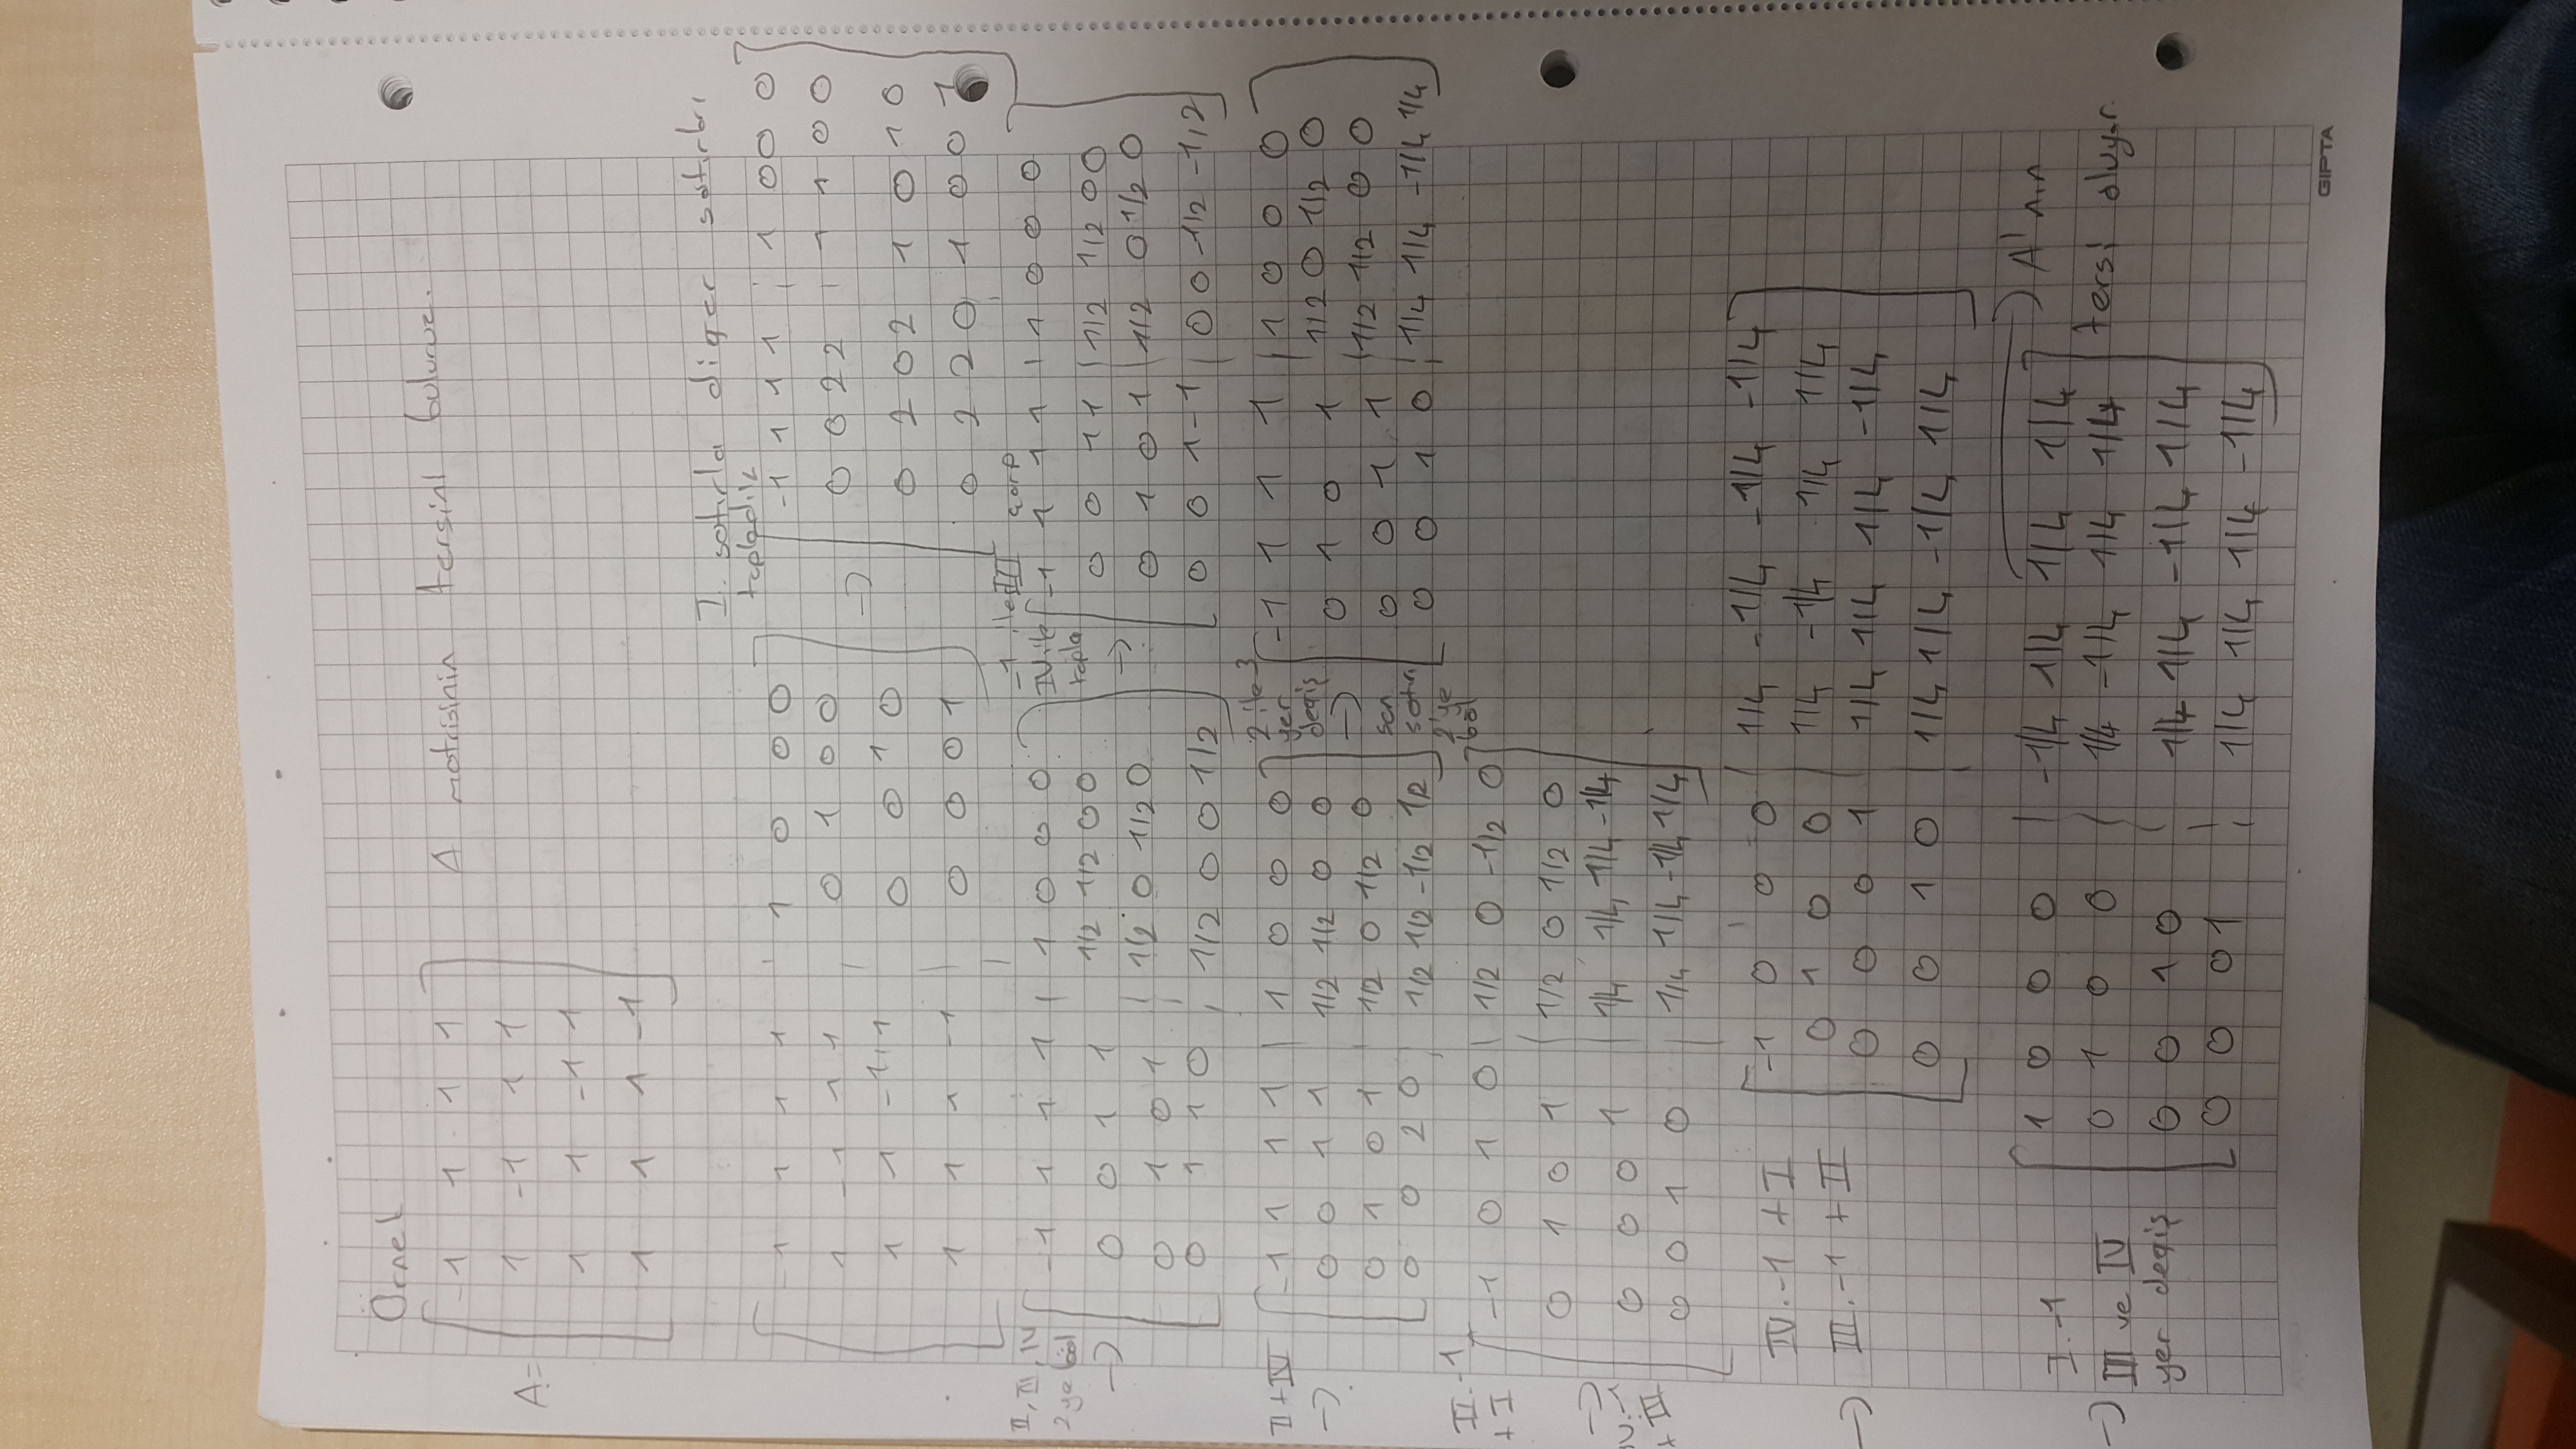 Örnek
A=
-1 1 1 1
A matrisinin tersini buluruz.
1 -1 1 1
1 1 -1 1
1 1 1 -1
I. satırla diğer satırları
topladık
-1 1 1 1 | 1 0 0 0
1 -1 1 1 | 0 1 0 0
1 1 -1 1 | 0 0 1 0
1 1 1 -1 | 0 0 0 1
→
-1 1 1 1 | 1 0 0 0
0 0 2 2 | 1 1 0 0
0 2 0 2 1 0 1 0
0 2 2 0 1 0 0 1
II, III, IV
2ye böl
→
-1 1 1 1 | 1 0 0 0
0 0 1 1 1/2 1/2 0 0
0 1 0 1 | 1/2 0 1/2 0
0 1 1 0 | 1/2 0 0 1/2
-1 ile III çarp
IV ile
topla
→
-1 1 1 1 | 1 0 0 0
0 0 1 1 | 1/2 1/2 0 0
0 1 0 1 | 1/2 0 1/2 0
0 0 1 -1 | 0 0 -1/2 -1/2
II+IV
→
-1 1 1 1 | 1 0 0 0
0 0 1 1 1/2 1/2 0 0
0 1 0 1 | 1/2 0 1/2 0
0 0 2 0 | 1/2 1/2 -1/2 1/2
2 ile 3
yer
değiş
→
son
satırı
2'ye
böl
-1 1 1 1 | 1 0 0 0
0 1 0 1 1/2 0 1/2 0
0 0 1 1 | 1/2 1/2 0 0
0 0 1 0 | 1/4 1/4 -1/4 1/4
II.-1
+ I
-1 0 1 0 | 1/2 0 -1/2 0
0 1 0 1 | 1/2 0 1/2 0
0 0 0 1 | 1/4 1/4 1/4 -1/4
+ III
0 0 1 0 | 1/4 1/4 -1/4 1/4
IV.-1 + I
→ III.-1 + II
-1 0 0 0 | 1/4 -1/4 -1/4 -1/4
0 1 0 0 | 1/4 -1/4 1/4 1/4
0 0 0 1 | 1/4 1/4 1/4 -1/4
0 0 1 0 | 1/4 1/4 -1/4 1/4
I.-1
→ III ve IV
yer değiş
1 0 0 0 | -1/4 1/4 1/4 1/4
0 1 0 0 | 1/4 -1/4 1/4 1/4
0 0 1 0 | 1/4 1/4 -1/4 1/4
0 0 0 1 | 1/4 1/4 1/4 -1/4
→ A'nın
tersi oluyor.
GIPTA